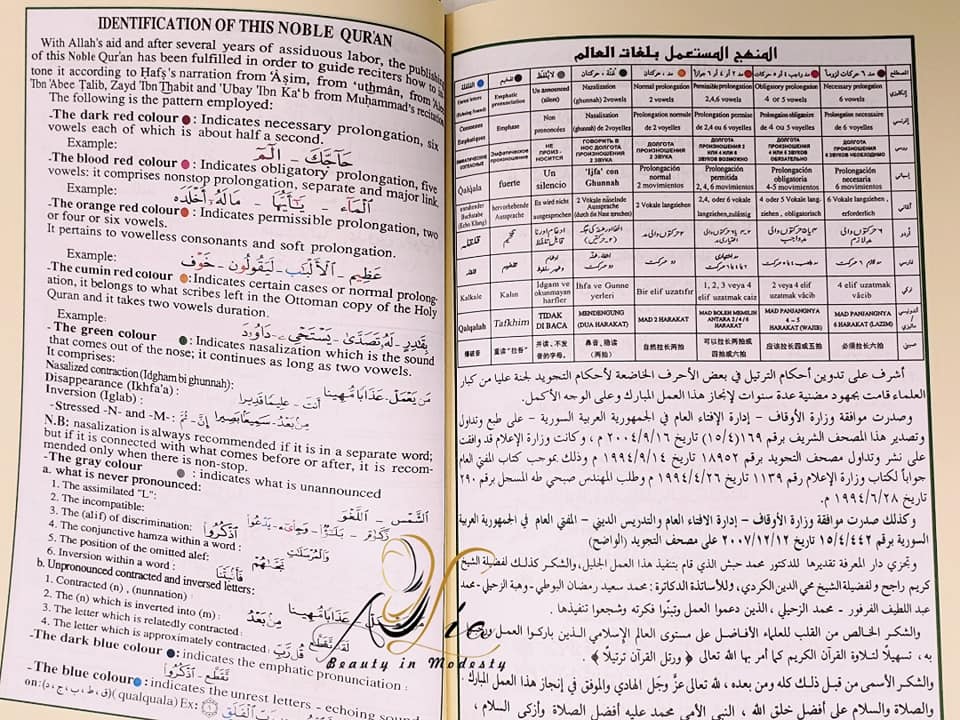 IDENTIFICATION OF THIS NOBLE QUR'AN
With Allah's aid and after several years of assiduous labor, the publishing
of this Noble Qur'an has been fulfilled in order to guide reciters how to
tone it according to Hafṣ's narration from 'Āṣim, from 'uthmān, from
Ibn 'Abee Ṭalib, Zayd Ibn Thabit and 'Ubay 'Ibn Ka'b from Muḥammad's recitation
The following is the pattern employed:
-The dark red colour : Indicates necessary prolongation, six
vowels each of which is about half a second.
Example: حَآجَّكَ - الٓمٓ
-The blood red colour : Indicates obligatory prolongation, five
vowels: it comprises nonstop prolongation, separate and major link.
Example: ٱلْمَآءِ - يَـٰٓأَيُّهَا - مَالَهُۥٓ أَخْلَدَهُ
-The orange red colour : Indicates permissible prolongation, two
or four or six vowels.
It pertains to vowelless consonants and soft prolongation.
Example: عَظِيمٌ - ٱلْأَلْبَـٰبِ - لَيَقُولُونَ - خَوْفٌ
-The cumin red colour : Indicates certain cases or normal prolong-
ation, it belongs to what scribes left in the Ottoman copy of the Holy
Quran and it takes two vowels duration.
Example: بِقَـٰدِرٍ - لَهُۥ تَصَدَّىٰ - يَسْتَحْىِۦ - دَاوُۥدَ
-The green colour : Indicates nasalization which is the sound
that comes out of the nose; it continues as long as two vowels.
It comprises:
Nasalized contraction (Idgham bi ghunnah): مَن يَعْمَلْ - عَذَابًا مُّهِينًا
Disappearance (Ikhfa'a): أَنتَ - عَلِيمًا قَدِيرًا
Inversion (Iglab): مِنۢ بَعْدِ - سَمِيعًۢا بَصِيرًا
-Stressed -N- and -M-: إِنَّ - ثُمَّ
N.B: nasalization is always recommended if it is in a separate word;
but if it is connected with what comes before or after, it is recom-
mended only when there is non-stop.
-The gray colour : indicates what is unannounced
a. what is never pronounced:
1. The assimilated "L": ٱلشَّمْسِ - ٱللَّغْوِ
2. The incompatible:
3. The (alif) of discrimination: ٱذْكُرُواْ
4. The conjunctive hamza within a word : وَٱلْمُرْسَلَـٰتِ
5. The position of the omitted alef:
6. Inversion within a word : فَأَنۢبَتْنَا
b. Unpronounced contracted and inversed letters:
1. Contracted (n) , (nunnation) : عَذَابًا مُّهِينًا
2. The (n) which is inverted into (m) : مِنۢ بَعْدِ
3. The letter which is relatedly contracted :
4. The letter which is approximately contracted : قُل رَّبِّ
-The dark blue colour : indicates the emphatic pronunciation :
- The blue colour : indicates the unrest letters - echoing sound
on: (ق، ط، ب، ج، د) ( qualquala) Ex:
Beauty in Modesty
المنهج المستعمل بلغات العالم
المصطلح | مد ٦ حركات لزوماً | مد واجب ٤ أو ٥ حركات | مد ٢ أو ٤ أو ٦ جوازاً | مد حركتان | غُنَّة ، حركتان | لا يُلفَظ | التفخيم | القلقلة
إنكليزي | Necessary prolongation 6 vowels | Obligatory prolongation 4 or 5 vowels | Permissible prolongation 2,4,6 vowels | Normal prolongation 2 vowels | Nazalization (ghunnah) 2 vowels | Un announced (silent) | Emphatic pronunciation
إفرنسي | Prolongation necessaire de 6 voyelles | Prolongation obligatoire de 4 ou 5 voyelles | Prolongation permise de 2,4 ou 6 voyelles | Prolongation normale de 2 voyelles | Nasalisation (ghunnah) de 2 voyelles | Non prononcées | Emphase | Consonnes Emphatiques
روسي | ДОЛГОТА ПРОИЗНОШЕНИЯ 6 ЗВУКОВ НЕОБХОДИМО | ДОЛГОТА ПРОИЗНОШЕНИЯ 4 ИЛИ 5 ЗВУКОВ ОБЯЗАТЕЛЬНО | ДОЛГОТА ПРОИЗНОШЕНИЯ 2 ИЛИ 4 ИЛИ 6 ЗВУКОВ ВОЗМОЖНО | ДОЛГОТА ПРОИЗНОШЕНИЯ 2 ЗВУКА | ГОВОРИТЬ В НОС ДОЛГОТА ПРОИЗНОШЕНИЯ 2 ЗВУКА | НЕ ПРОИЗ-НОСИТСЯ | Эмфатическое произношение
إسباني | Prolongación necesaria 6 movimientos | Prolongación obligatoria 4-5 movimientos | Prolongación permitida 2, 4, 6 movimientos | Prolongación normal 2 movimientos | 'Ijfa' con Ghunnah | Un silencio | fuerte | Qalqala
ألماني | 6 Vokale langziehen , erforderlich | 4 oder 5 Vokale langziehen , obligatorisch | 2,4, oder 6 vokale langziehen,zulässig | 2 Vokale langziehen | 2 Vokale näselnde Aussprache (durch die Nase sprechen) | Es wird nicht ausgesprochen | hervorhebende Aussprache
أوردو
فارسي
تركي | 4 elif uzatmak vâcib | 2 veya 4 elif uzatmak vâcib | 1, 2, 3 veya 4 elif uzatmak caiz | Bir elif uzatıfır | Ihfa ve Gunne yerleri | İdgam ve okunmayan harfler | Kalın | Kalkale
أندونيسي / ماليزي | MAD PANJANGNYA 6 HARAKAT (LAZIM) | MAD PANJANGNYA 4 – 5 HARAKAT (WAJIB) | MAD BOLEH MEMILIH ANTARA 2/4/6 HARAKAT | MAD 2 HARAKAT | MENDENGUNG (DUA HARAKAT) | TIDAK DI BACA | Tafkhim | Qalqalah
صيني | 必须拉长六拍 | 应该拉长四或五拍 | 可以拉长两拍或四拍或六拍 | 自然拉长两拍 | 鼻音，稳读（两拍） | 并读、不发音的字母。 | 重读“拉吾” | 爆破音
أشرف على تدوين أحكام الترتيل في بعض الأحرف الخاضعة لأحكام التجويد لجنة عليا من كبار
العلماء قامت بجهود مضنية عدة سنوات لإنجاز هذا العمل المبارك وعلى الوجه الأكمل.
وصدرت موافقة وزارة الأوقاف - إدارة الإفتاء العام في الجمهورية العربية السورية - على طبع وتداول
وتصدير هذا المصحف الشريف برقم ١٦٩ (١٥/٤) تاريخ ٢٠٠٤/٩/١٦ م ، وكانت وزارة الإعلام قد وافقت
على نشر وتداول مصحف التجويد برقم ١٨٩٥٢ تاريخ ١٩٩٤/٩/١٤ م وذلك بموجب كتاب المفتي العام
جواباً لكتاب وزارة الإعلام رقم ١١٣٩ تاريخ ١٩٩٤/٤/٢٦ م وطلب المهندس صبحي طه المسجل برقم ٢٩٠
تاريخ ١٩٩٤/٦/٢٨ م.
وكذلك صدرت موافقة وزارة الأوقاف - إدارة الافتاء العام والتدريس الديني - المفتي العام في الجمهورية العربية
السورية برقم ١٥/٤/٤٤٢ تاريخ ٢٠٠٧/١٢/١٢ على مصحف التجويد (الواضح)
ويجزي دار المعرفة تقديرها للدكتور محمد حبش الذي قام بتنفيذ هذا العمل الجليل، والشكر كذلك لفضيلة الشيخ
كريم راجح ولفضيلة الشيخ محي الدين الكردي، وللأساتذة الدكاترة: محمد سعيد رمضان البوطي - وهبة الزحيلي - محمد
عبد اللطيف الفرفور - محمد الزحيلي ، الذين دعموا العمل وتبنُّوا فكرته وشجعوا تنفيذها .
والشكر الخالص من القلب للعلماء الأفاضل على مستوى العالم الإسلامي الذين باركوا العمل
به ، تسهيلاً لتلاوة القرآن الكريم كما أمر بها الله تعالى ﴿ ورتل القرآن ترتيلاً ﴾ .
والشكر الأسمى من قبل ذلك كله ومن بعده ، لله تعالى عزَّ وجَل الهادي والموفق في إنجاز هذا العمل المبارك .
والصلاة والسلام على أفضل خلق الله ، النبي الأمي محمد عليه أفضل الصلاة وأزكى السلام ،